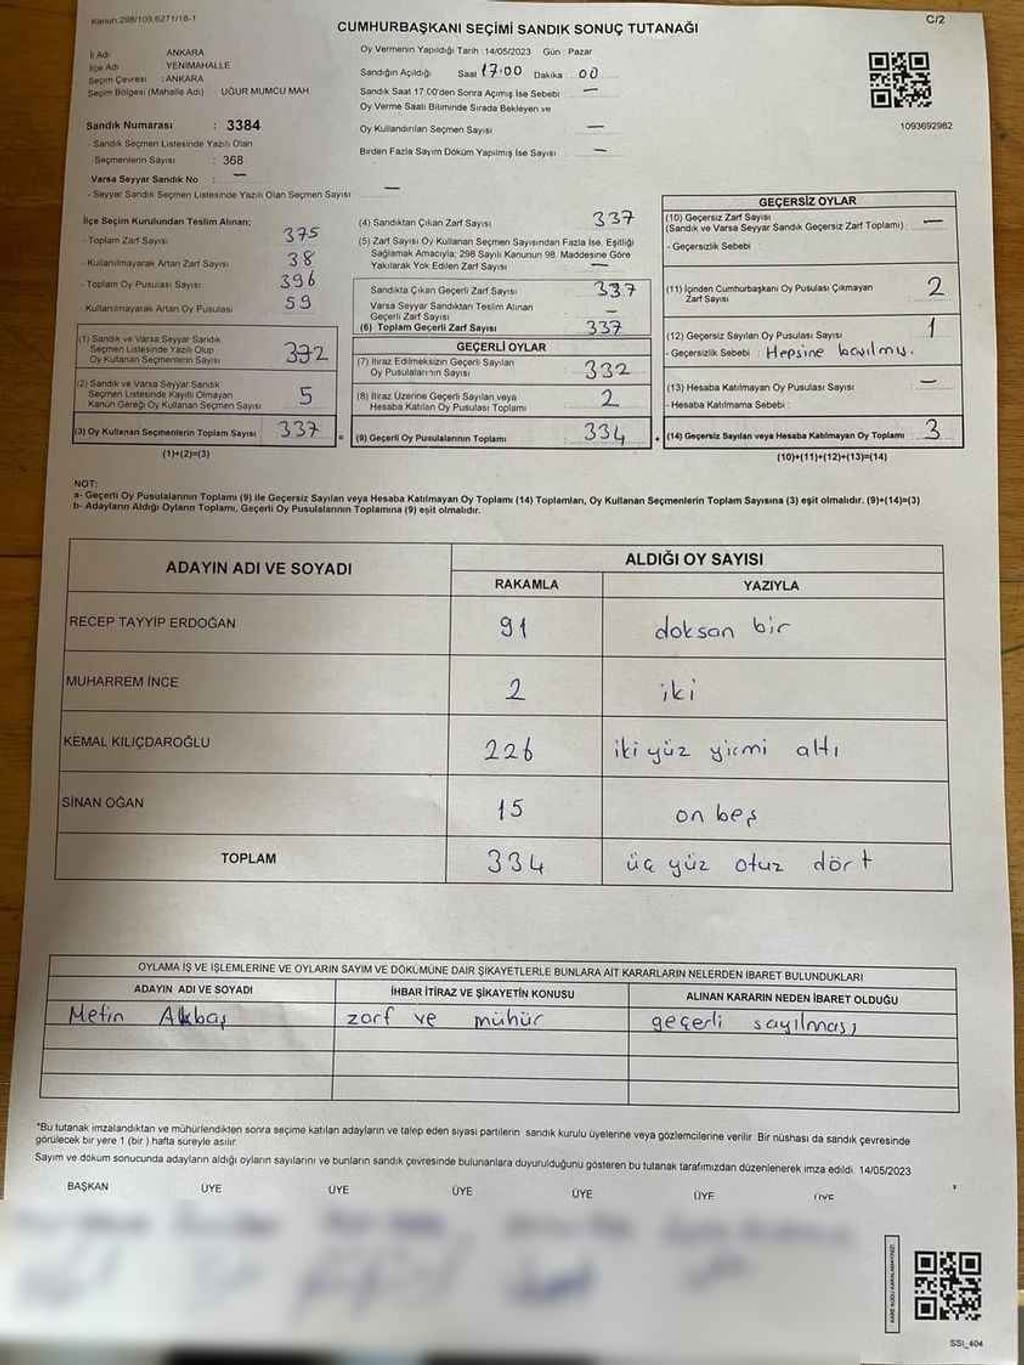 Kanun:298/109,6271/18-1
C/2
CUMHURBAŞKANI SEÇİMİ SANDIK SONUÇ TUTANAĞI
İl Adı ANKARA
İlçe Adı YENİMAHALLE
Seçim Çevresi : ANKARA
Seçim Bölgesi (Mahalle Adı) UĞUR MUMCU MAH.
Oy Vermenin Yapıldığı Tarih : 14/05/2023 Gün : Pazar
Sandığın Açıldığı Saat 17:00 Dakika : 00
Sandık Saat 17.00'den Sonra Açımış İse Sebebi —
Oy Verme Saati Bitiminde Sırada Bekleyen ve
Oy Kullandırılan Seçmen Sayısı —
Birden Fazla Sayım Döküm Yapılmış İse Sayısı —
1093692982
Sandık Numarası : 3384
- Sandık Seçmen Listesinde Yazılı Olan
Seçmenlerin Sayısı : 368
Varsa Seyyar Sandık No : —
- Seyyar Sandık Seçmen Listesinde Yazılı Olan Seçmen Sayısı —
İlçe Seçim Kurulundan Teslim Alınan;
- Toplam Zarf Sayısı 375
- Kullanılmayarak Artan Zarf Sayısı 38
- Toplam Oy Pusulası Sayısı 396
- Kullanılmayarak Artan Oy Pusulası 59
(1) Sandık ve Varsa Seyyar Sandık
Seçmen Listesinde Yazılı Olup
Oy Kullanan Seçmenlerin Sayısı 332
(2) Sandık ve Varsa Seyyar Sandık
Seçmen Listesinde Kayıtlı Olmayan
Kanun Gereği Oy Kullanan Seçmen Sayısı 5
(3) Oy Kullanan Seçmenlerin Toplam Sayısı 337
(1)+(2)=(3)
(4) Sandıktan Çıkan Zarf Sayısı 337
(5) Zarf Sayısı Oy Kullanan Seçmen Sayısından Fazla İse, Eşitliği
Sağlamak Amacıyla; 298 Sayılı Kanunun 98. Maddesine Göre
Yakılarak Yok Edilen Zarf Sayısı —
Sandıkta Çıkan Geçerli Zarf Sayısı 337
Varsa Seyyar Sandıktan Teslim Alınan
Geçerli Zarf Sayısı —
(6) Toplam Geçerli Zarf Sayısı 337
GEÇERLİ OYLAR
(7) İtiraz Edilmeksizin Geçerli Sayılan
Oy Pusulalarının Sayısı 332
(8) İtiraz Üzerine Geçerli Sayılan veya
Hesaba Katılan Oy Pusulası Toplamı 2
= (9) Geçerli Oy Pusulalarının Toplamı 334
GEÇERSİZ OYLAR
(10) Geçersiz Zarf Sayısı
(Sandık ve Varsa Seyyar Sandık Geçersiz Zarf Toplamı) : —
- Geçersizlik Sebebi
(11) İçinden Cumhurbaşkanı Oy Pusulası Çıkmayan
Zarf Sayısı 2
(12) Geçersiz Sayılan Oy Pusulası Sayısı 1
- Geçersizlik Sebebi : Hepsine basılmış.
(13) Hesaba Katılmayan Oy Pusulası Sayısı —
- Hesaba Katılmama Sebebi :
+ (14) Geçersiz Sayılan veya Hesaba Katılmayan Oy Toplamı 3
(10)+(11)+(12)+(13)=(14)
NOT:
a- Geçerli Oy Pusulalarının Toplamı (9) ile Geçersiz Sayılan veya Hesaba Katılmayan Oy Toplamı (14) Toplamları, Oy Kullanan Seçmenlerin Toplam Sayısına (3) eşit olmalıdır. (9)+(14)=(3)
b- Adayların Aldığı Oyların Toplamı, Geçerli Oy Pusulalarının Toplamına (9) eşit olmalıdır.
ADAYIN ADI VE SOYADI
ALDIĞI OY SAYISI
RAKAMLA YAZIYLA
RECEP TAYYİP ERDOĞAN 91 doksan bir
MUHARREM İNCE 2 iki
KEMAL KILIÇDAROĞLU 226 iki yüz yirmi altı
SİNAN OĞAN 15 on beş
TOPLAM 334 üç yüz otuz dört
OYLAMA İŞ VE İŞLEMLERİNE VE OYLARIN SAYIM VE DÖKÜMÜNE DAİR ŞİKAYETLERLE BUNLARA AİT KARARLARIN NELERDEN İBARET BULUNDUKLARI
ADAYIN ADI VE SOYADI İHBAR İTİRAZ VE ŞİKAYETİN KONUSU ALINAN KARARIN NEDEN İBARET OLDUĞU
Metin Akbaş zarf ve mühür geçerli sayılması
*Bu tutanak imzalandıktan ve mühürlendikten sonra seçime katılan adayların ve talep eden siyasi partilerin sandık kurulu üyelerine veya gözlemcilerine verilir. Bir nüshası da sandık çevresinde
görülecek bir yere 1 (bir ) hafta süreyle asılır.
Sayım ve döküm sonucunda adayların aldığı oyların sayılarını ve bunların sandık çevresinde bulunanlara duyurulduğunu gösteren bu tutanak tarafımızdan düzenlenerek imza edildi. 14/05/2023
BAŞKAN ÜYE ÜYE ÜYE ÜYE ÜYE ÜYE
SSİ_404